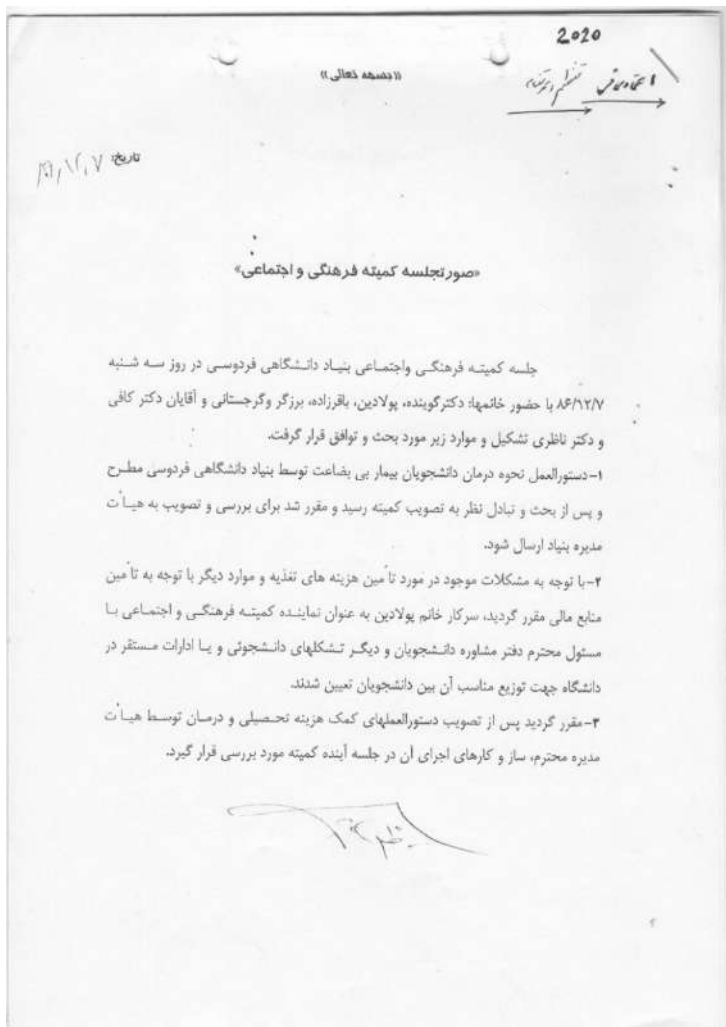 2020
«بسمه تعالی»
تاریخ: ۸۶/۱۲/۷
«صورتجلسه کمیته فرهنگی و اجتماعی»
جلسه کمیته فرهنگی واجتماعی بنیاد دانشگاهی فردوسی در روز سه شنبه
۸۶/۱۲/۷ با حضور خانمها: دکترگوینده، پولادین، باقرزاده، برزگر وگرجستانی و آقایان دکتر کافی
و دکتر ناظری تشکیل و موارد زیر مورد بحث و توافق قرار گرفت.
۱-دستورالعمل نحوه درمان دانشجویان بیمار بی بضاعت توسط بنیاد دانشگاهی فردوسی مطرح
و پس از بحث و تبادل نظر به تصویب کمیته رسید و مقرر شد برای بررسی و تصویب به هیأت
مدیره بنیاد ارسال شود.
۲-با توجه به مشکلات موجود در مورد تأمین هزینه های تغذیه و موارد دیگر با توجه به تأمین
منابع مالی مقرر گردید، سرکار خانم پولادین به عنوان نماینده کمیته فرهنگی و اجتماعی با
مسئول محترم دفتر مشاوره دانشجویان و دیگر تشکلهای دانشجوئی و یا ادارات مستقر در
دانشگاه جهت توزیع مناسب آن بین دانشجویان تعیین شدند.
۳-مقرر گردید پس از تصویب دستورالعملهای کمک هزینه تحصیلی و درمان توسط هیأت
مدیره محترم، ساز و کارهای اجرای آن در جلسه آینده کمیته مورد بررسی قرار گیرد.